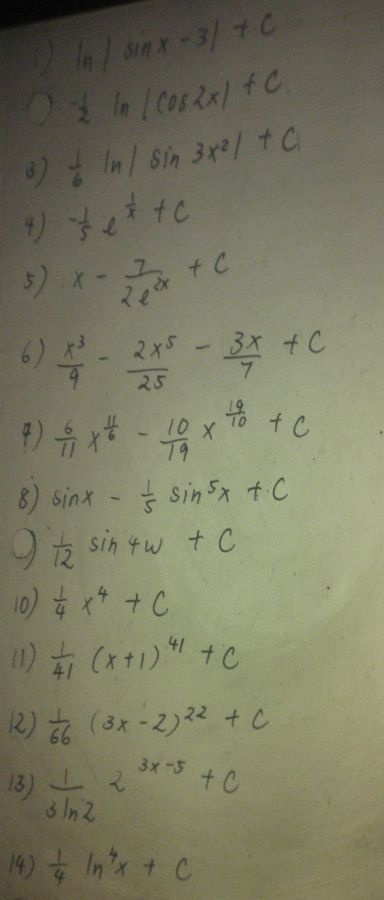 1) ln | sinx - 3 | + C
-1/2 ln |cos 2x| + C
3) 1/6 ln | sin 3x² | + C
4) -1/5 e^(1/x) + C
5) x - 7/(2e^(2x)) + C
6) x³/9 - 2x⁵/25 - 3x/7 + C
7) 6/11 x^(11/6) - 10/19 x^(19/10) + C
8) sinx - 1/5 sin⁵x + C
1/12 sin 4w + C
10) 1/4 x⁴ + C
11) 1/41 (x+1)^41 + C
12) 1/66 (3x-2)^22 + C
13) 1/(3 ln2) 2^(3x-5) + C
14) 1/4 ln⁴x + C